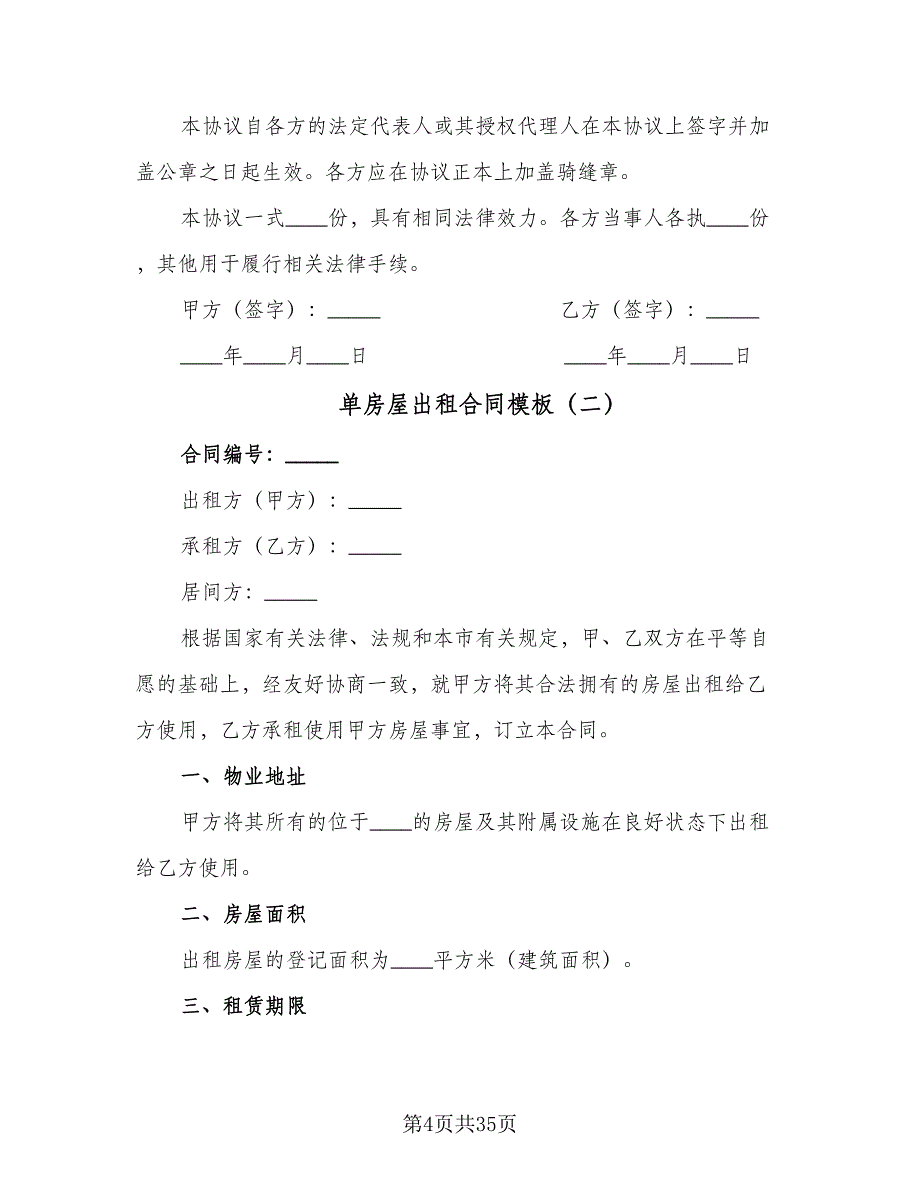 本协议自各方的法定代表人或其授权代理人在本协议上签字并加
盖公章之日起生效。各方应在协议正本上加盖骑缝章。
本协议一式____份，具有相同法律效力。各方当事人各执____份
，其他用于履行相关法律手续。
甲方（签字）：_____ 乙方（签字）：_____
____年____月____日 ____年____月____日
单房屋出租合同模板（二）
合同编号：_____
出租方（甲方）：_____
承租方（乙方）：_____
居间方：_____
根据国家有关法律、法规和本市有关规定，甲、乙双方在平等自
愿的基础上，经友好协商一致，就甲方将其合法拥有的房屋出租给乙
方使用，乙方承租使用甲方房屋事宜，订立本合同。
一、物业地址
甲方将其所有的位于____的房屋及其附属设施在良好状态下出租
给乙方使用。
二、房屋面积
出租房屋的登记面积为____平方米（建筑面积）。
三、租赁期限
第4页共35页